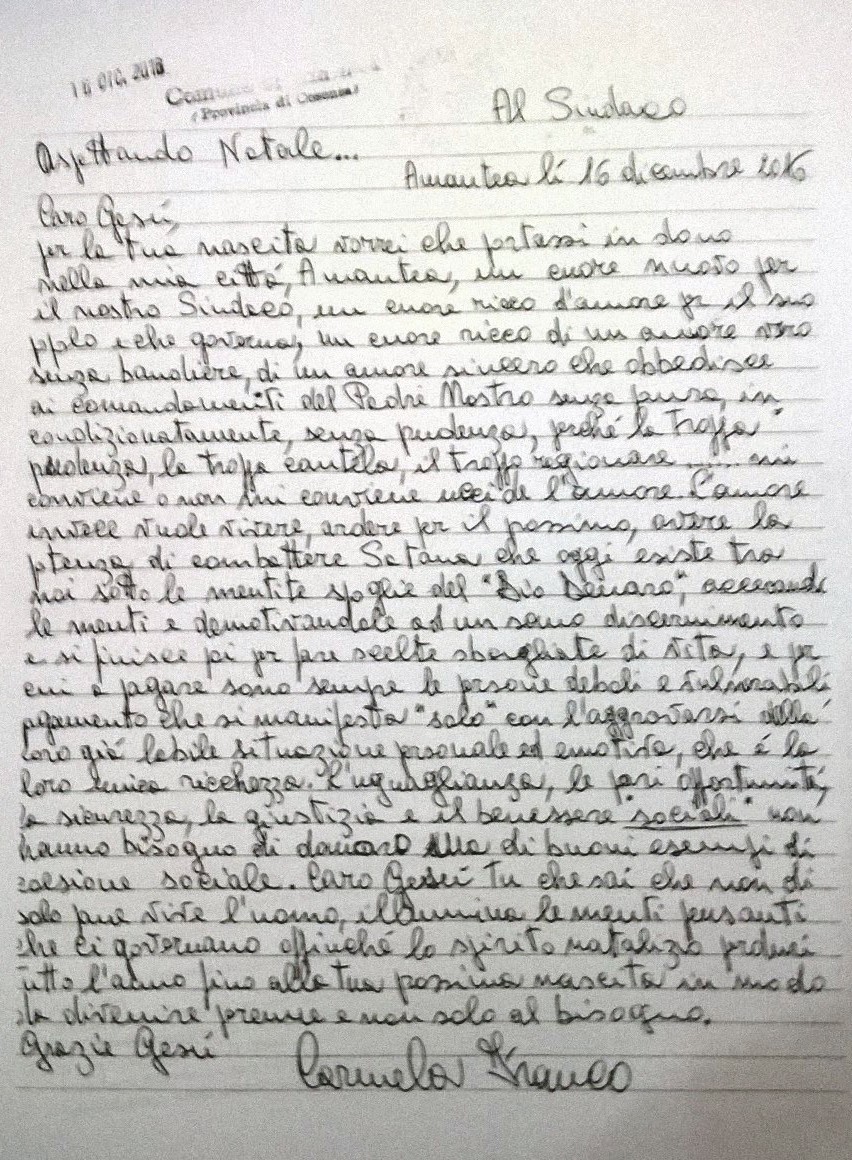 16 DIC. 2016
Comune
(Provincia di Cosenza)
Al Sindaco
Aspettando Natale...
Amantea lì 16 dicembre 2016
Caro Gesù,
per la tua nascita vorrei che portassi in dono
nella mia città, Amantea, un cuore nuovo per
il nostro Sindaco, un cuore ricco d'amore pr il suo
pplo e che governa, un cuore ricco di un amore vero
senza bandiere, di un amore sincero che obbedisce
ai comandamenti del Padre Nostro senza paura, in
condizionatamente, senza prudenza, perché la troppa
prudenza, la troppa cautela, il troppo ragionare ....... mi
conviene o non mi conviene uccide l'amore. L'amore
invece vuole vivere, ardere per il prossimo, avere la
potenza di combattere Satana che oggi esiste tra
noi sotto le mentite spoglie del "Dio Denaro", accecando
le menti e demotivandole ad un sano discernimento
e si finisce poi pr fare scelte sbagliate di vita, e pr
cui a pagare sono sempre le prsone deboli e vulnerabili
pagamento che si manifesta "solo" con l'aggravarsi della
loro già labile situazione prsonale ed emotiva, che é la
loro unica ricchezza. L'uguaglianza, le pari opportunità,
la sicurezza, la giustizia e il benessere "sociali" non
hanno bisogno di danaro ma di buoni esempi di
coesione sociale. Caro Gesù Tu che sai che non di
solo pane vive l'uomo, illumina le menti pensanti
che ci governano affinché lo spirito natalizio perduri
tutto l'anno fino alla tua prossima nascita in modo
da divenire prenne e non solo al bisogno.
Grazie Gesù
Carmela Franco